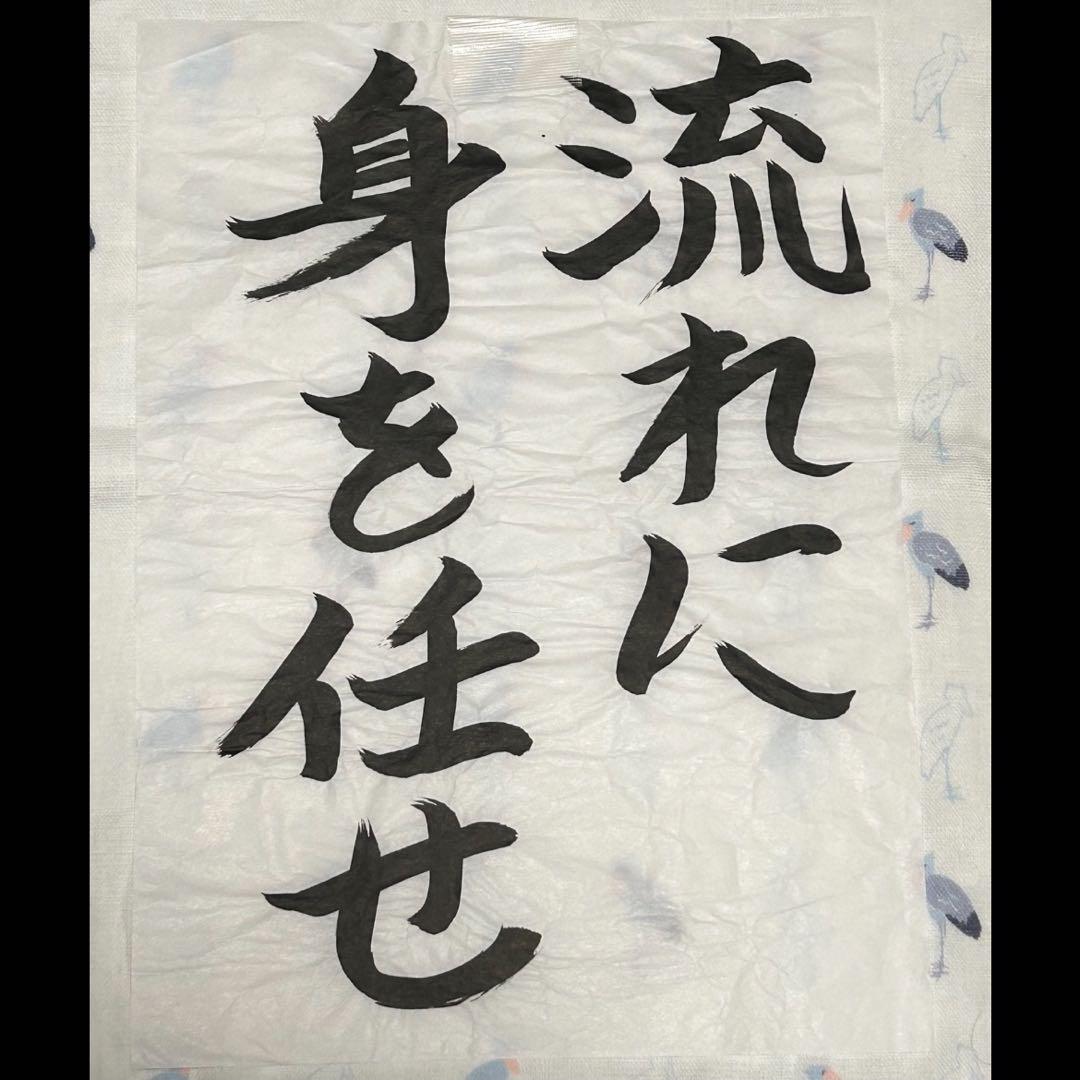 流れに
身を任せ